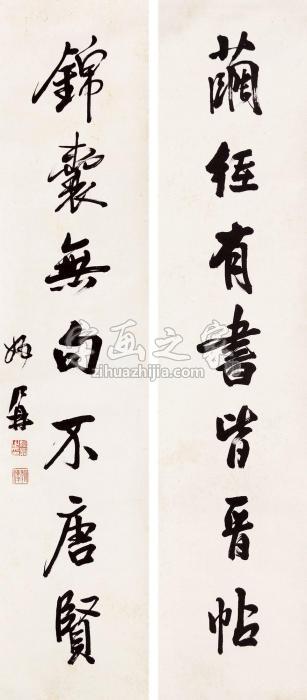 繭紙有書皆晋帖
錦囊無句不唐賢
姚鼐
字画之家
zihuazhijia.com